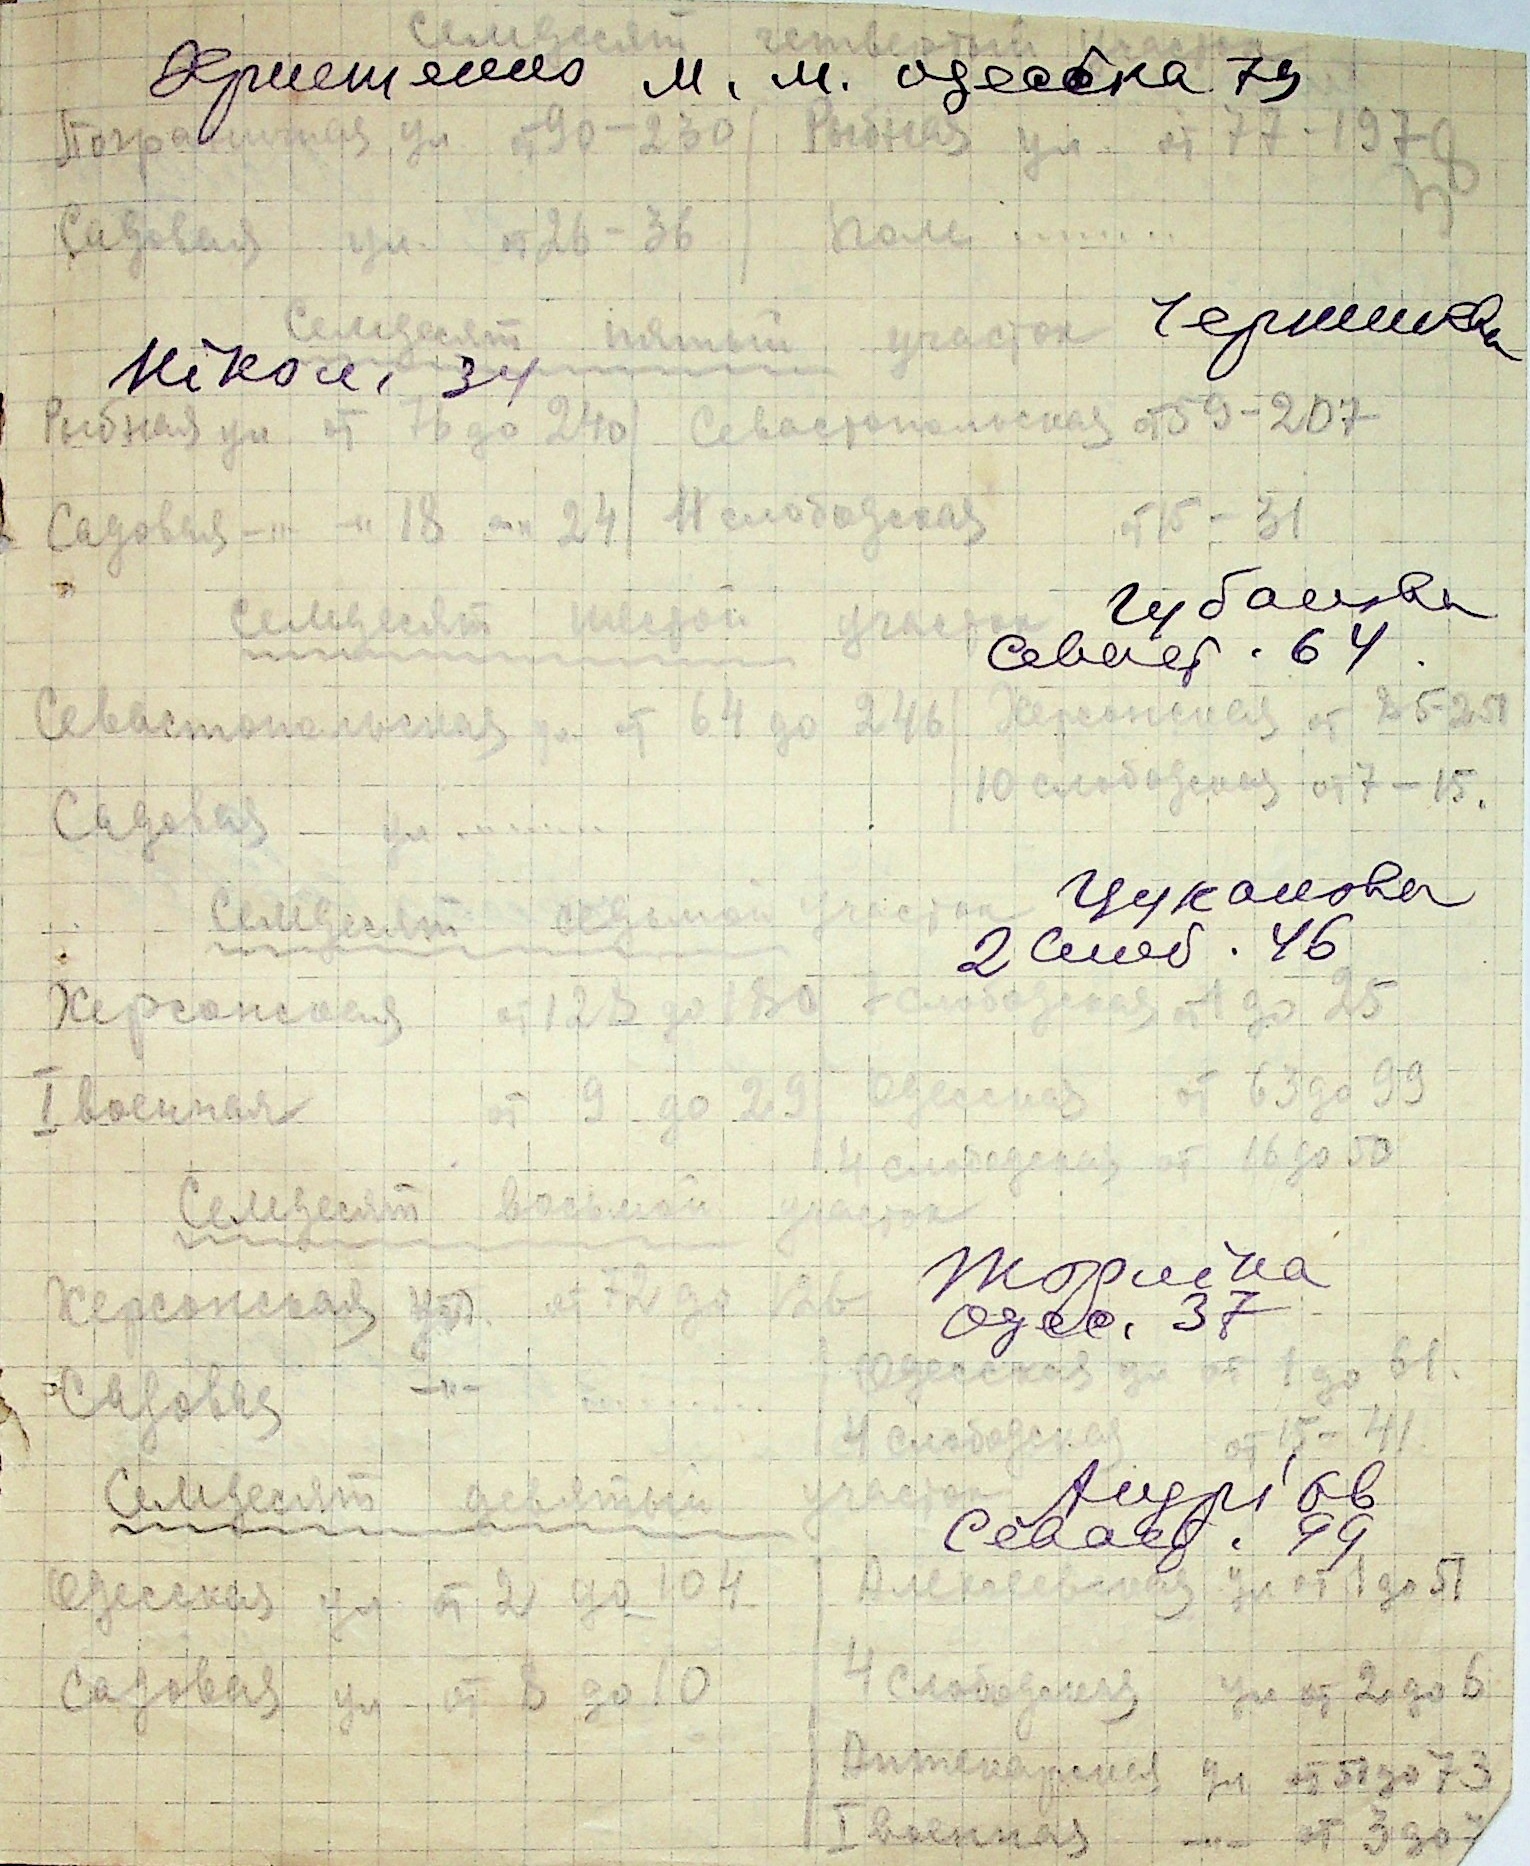 Семдесят четвертый участок
Христенко М. М. Одеська 79
Пограничная ул от 90-230 Рыбная ул. от 77-197
Садовая ул. от 26-36 Поле ........
Семдесят пятый участок
Нікол. 34
Рыбная ул от 76 до 240 Севастопольская от 59-207
Садовая -"- -"- 18 -"- 24 11 слободская от 15-31
Семдесят шестой участок
Севаст. 64.
Севастопольская ул от 64 до 246 Херсонская от 25-251
10 слободская от 7-15.
Садовая ул ........
Семдесят седьмой участок Цуканова
2 Слоб. 46
Херсонская от 128 до 180 слободская от 1 до 25
I военная от 9 до 29 Одесская от 63 до 99
4 слободская от 16 до 50
Семдесят восьмой участок
Херсонская ул. от 72 до 126
Одес. 37
Одесская ул от 1 до 61.
Садовая -"- ........
4 слободская от 15-41.
Семдесят девятый участок
Андріїв
Севаст. 99
Одесская ул от 2 до 104 Алексеевская ул от 1 до 51
Садовая ул от 8 до 10 4 Слободская ул от 2 до 6
Аптекарская ул от 51 до 73
I военная -"- от 3 до 7